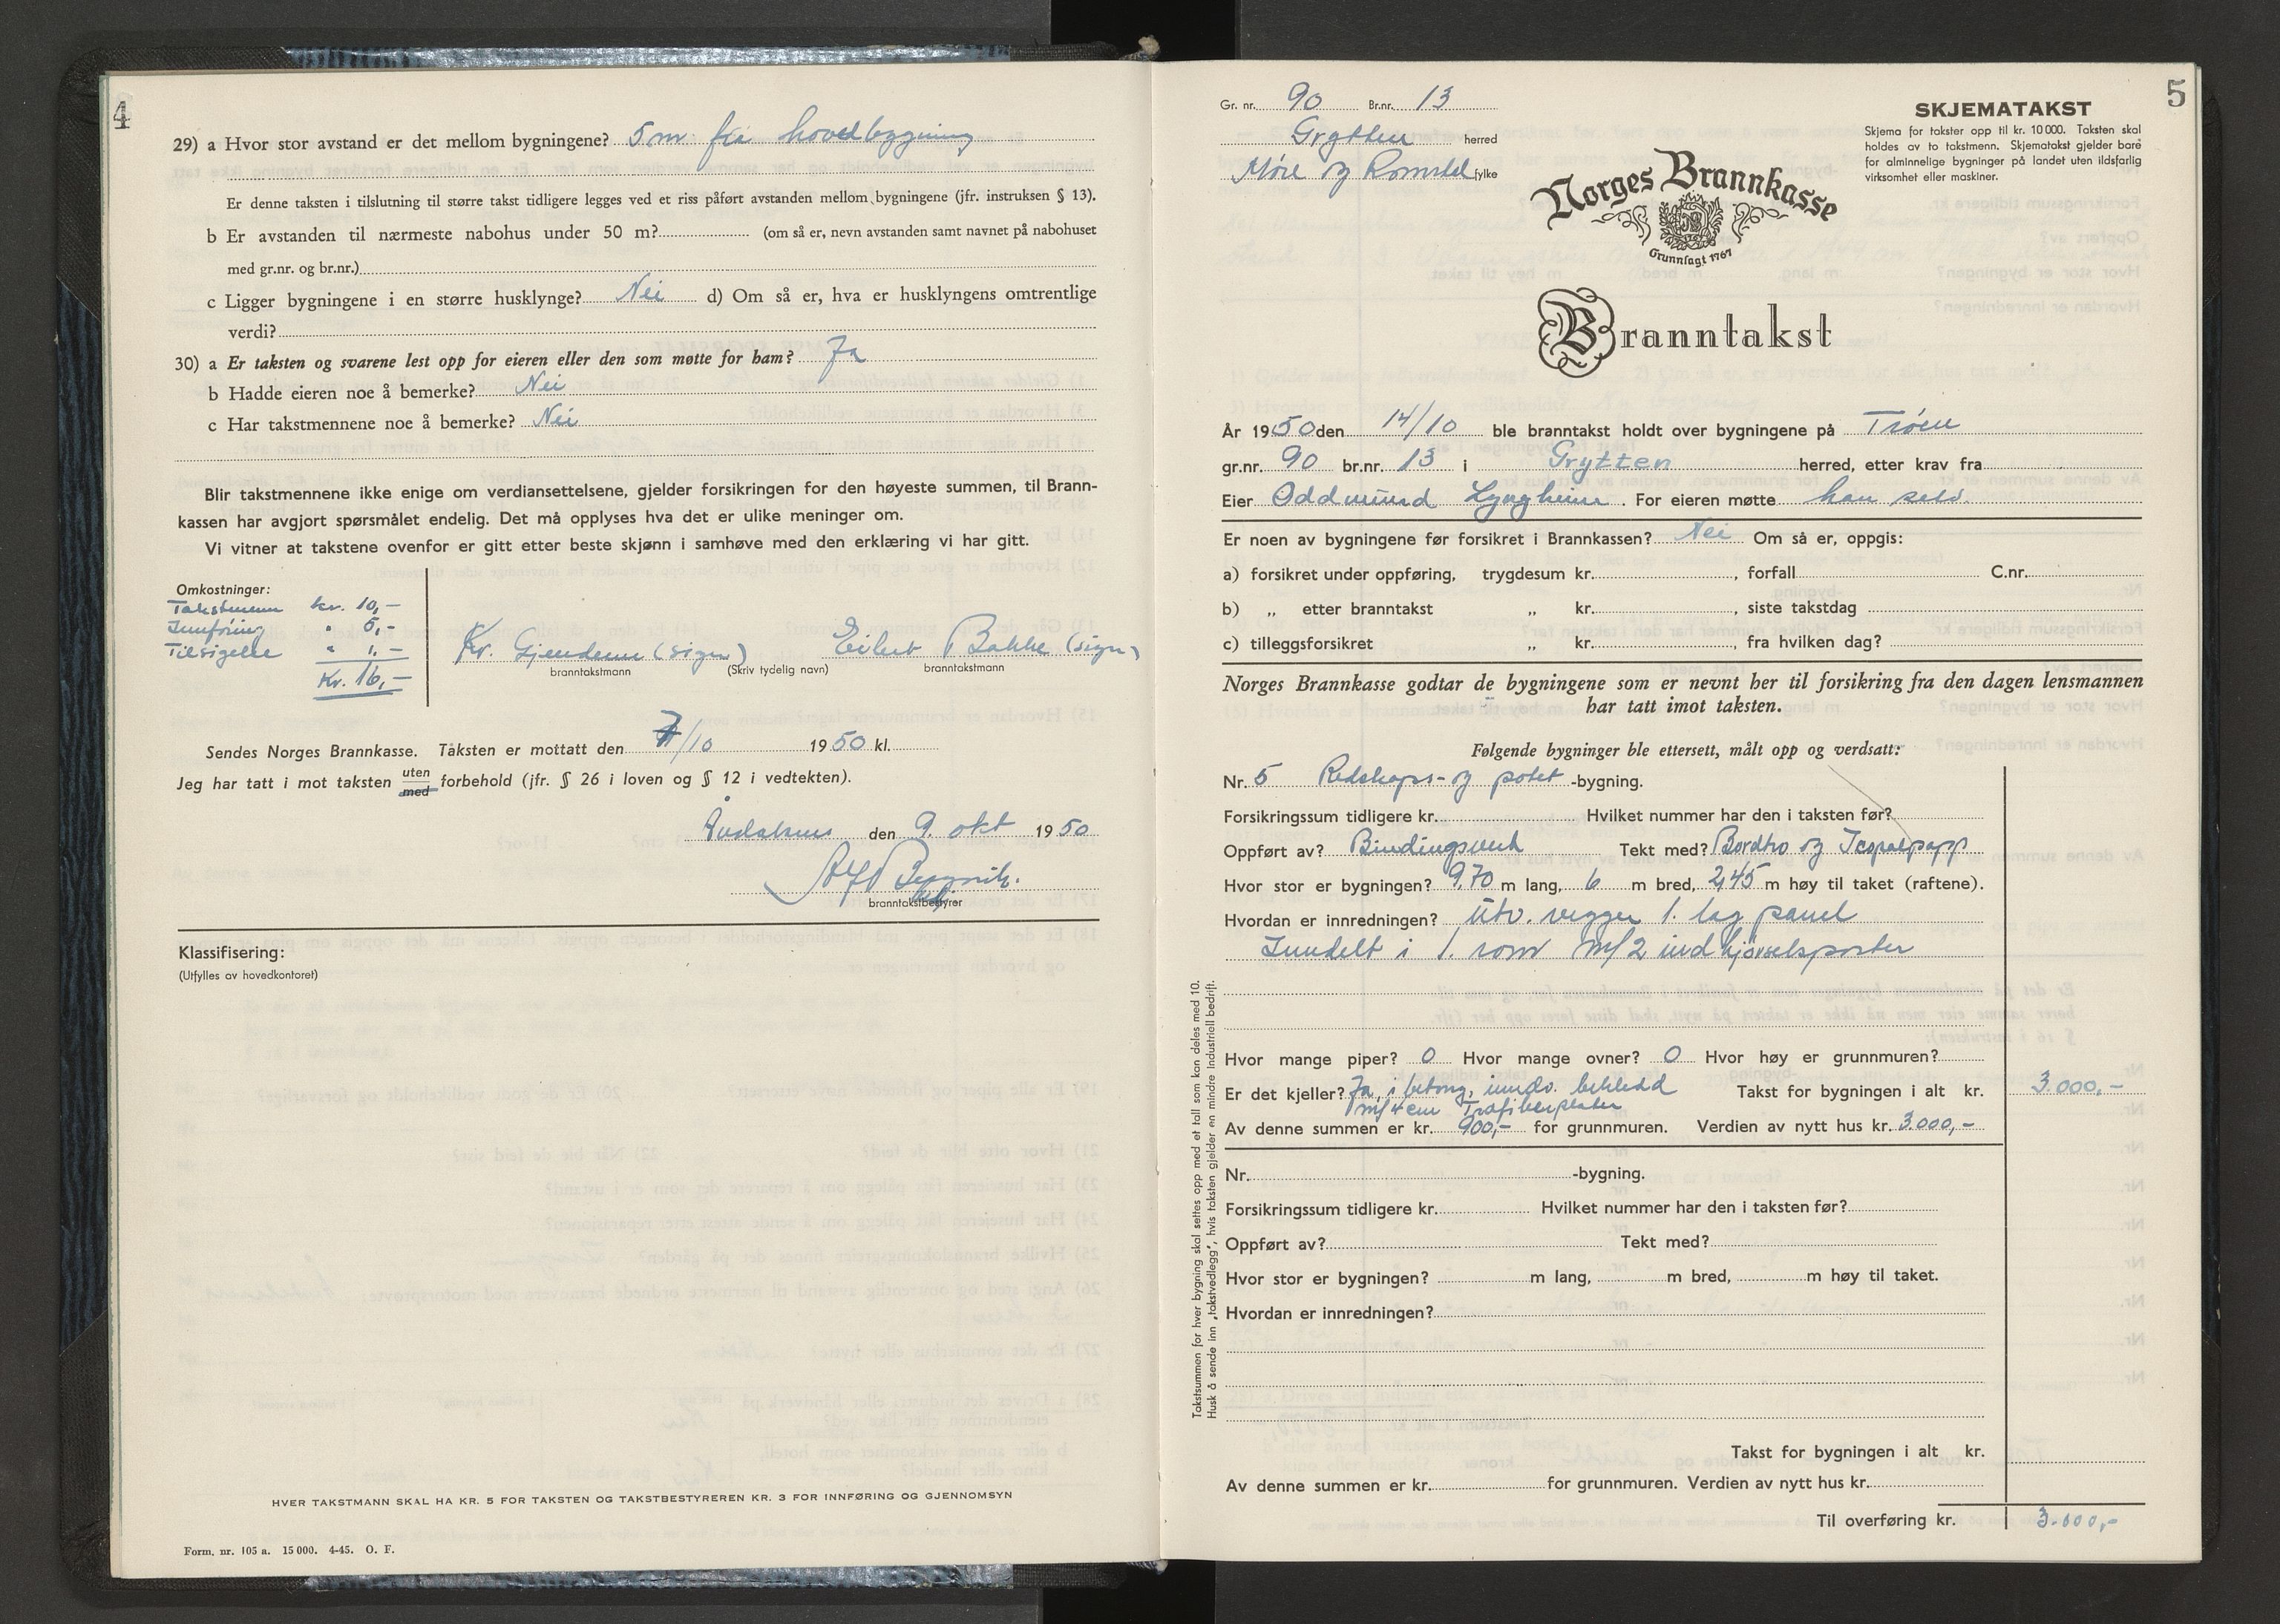 4
29) a Hvor stor avstand er det mellom bygningene? 5 m fra hovedbygning
Er denne taksten i tilslutning til større takst tidligere legges ved et riss påført avstanden mellom bygningene (jfr. instruksen § 13).
b Er avstanden til nærmeste nabohus under 50 m? (om så er, nevn avstanden samt navnet på nabohuset
med gr.nr. og br.nr.)
c Ligger bygningene i en større husklynge? Nei d) Om så er, hva er husklyngens omtrentlige
verdi?
30) a Er taksten og svarene lest opp for eieren eller den som møtte for ham? Ja
b Hadde eieren noe å bemerke? Nei
c Har takstmennene noe å bemerke? Nei
Blir takstmennene ikke enige om verdiansettelsene, gjelder forsikringen for den høyeste summen, til Brann-
kassen har avgjort spørsmålet endelig. Det må opplyses hva det er ulike meninger om.
Vi vitner at takstene ovenfor er gitt etter beste skjønn i samhøve med den erklæring vi har gitt.
Omkostninger:
Takstmenn kr. 10,-
Innføring " 5,-
Tilsigelse " 1.-
Kr. 16,-
Kr. Gjendem (sign) Eilert Bakke (sign)
branntakstmann (Skriv tydelig navn) branntakstmann
Sendes Norges Brannkasse. Taksten er mottatt den /10 1950 kl.
Jeg har tatt i mot taksten uten med forbehold (jfr. § 26 i loven og § 12 i vedtekten).
Åndalsnes den 9. okt 1950
branntakstbestyrer
Klassifisering:
(Utfylles av hovedkontoret)
HVER TAKSTMANN SKAL HA KR. 5 FOR TAKSTEN OG TAKSTBESTYREREN KR. 3 FOR INNFØRING OG GJENNOMSYN
Form. nr. 105 a. 15 000. 4-45. O. F.
5
Gr. nr. 90 Br.nr. 13
Grytten herred
Møre og Romsdal fylke
SKJEMATAKST
Skjema for takster opp til kr. 10 000. Taksten skal
holdes av to takstmenn. Skjematakst gjelder bare
for alminnelige bygninger på landet uten ildsfarlig
virksomhet eller maskiner.
Norges Brannkasse
Grunnlagt 1767
Branntakst
År 1950 den 14/10 ble branntakst holdt over bygningene på Trøen
gr.nr. 90 br.nr. 13 i Grytten herred, etter krav fra
Eier Oddmund Lyngheim. For eieren møtte han selv.
Er noen av bygningene før forsikret i Brannkassen? Nei Om så er, oppgis:
a) forsikret under oppføring, trygdesum kr. , forfall C.nr.
b) „ etter branntakst „ kr. , siste takstdag
c) tilleggsforsikret „ kr. , fra hvilken dag?
Norges Brannkasse godtar de bygningene som er nevnt her til forsikring fra den dagen lensmannen
har tatt imot taksten.
Følgende bygninger ble ettersett, målt opp og verdsatt:
Nr. 5 Redskaps- og potet -bygning.
Forsikringssum tidligere kr. Hvilket nummer har den i taksten før?
Oppført av? Bindingsverk Tekt med? Bordtro og papp
Hvor stor er bygningen? 9,70 m lang, 6 m bred, 2,45 m høy til taket (raftene).
Hvordan er innredningen? Utv. vegger 1. lag panel
Inndelt i 1. rom m/2 indkjørselsporter
Hvor mange piper? 0 Hvor mange ovner? 0 Hvor høy er grunnmuren?
Er det kjeller? Ja, i betong, innv. bekledd Takst for bygningen i alt kr. 3.000,-
m/4 cm Trefiberplater
Av denne summen er kr. 900,- for grunnmuren. Verdien av nytt hus kr. 3.000,-
Nr. -bygning.
Forsikringssum tidligere kr. Hvilket nummer har den i taksten før?
Oppført av? Tekt med?
Hvor stor er bygningen? m lang, m bred, m høy til taket.
Hvordan er innredningen?
Takst for bygningen i alt kr.
Av denne summen er kr. for grunnmuren. Verdien av nytt hus kr.
Til overføring kr. 3.000,-
Takstsummen for hver bygning skal settes opp med et tall som kan deles med 10.
Husk å sende inn „takstvedlegg", hvis taksten gjelder en mindre industriell bedrift.